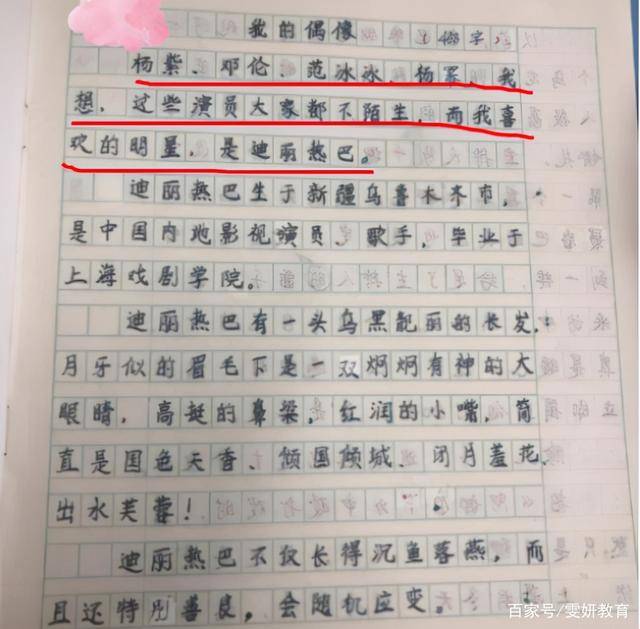 我的偶像
杨紫、邓伦、范冰冰、杨幂，我
想，这些演员大家都不陌生，而我喜
欢的明星，是迪丽热巴。
迪丽热巴生于新疆乌鲁木齐市，
是中国内地影视演员、歌手，毕业于
上海戏剧学院。
迪丽热巴有一头乌黑靓丽的长发，
月牙似的眉毛下是一双炯炯有神的大
眼睛，高挺的鼻梁，红润的小嘴，简
直是国色天香、倾国倾城、闭月羞花、
出水芙蓉！
迪丽热巴不仅长得沉鱼落燕，而
且还特别善良，会随机应变。
百家号/雯妍教育